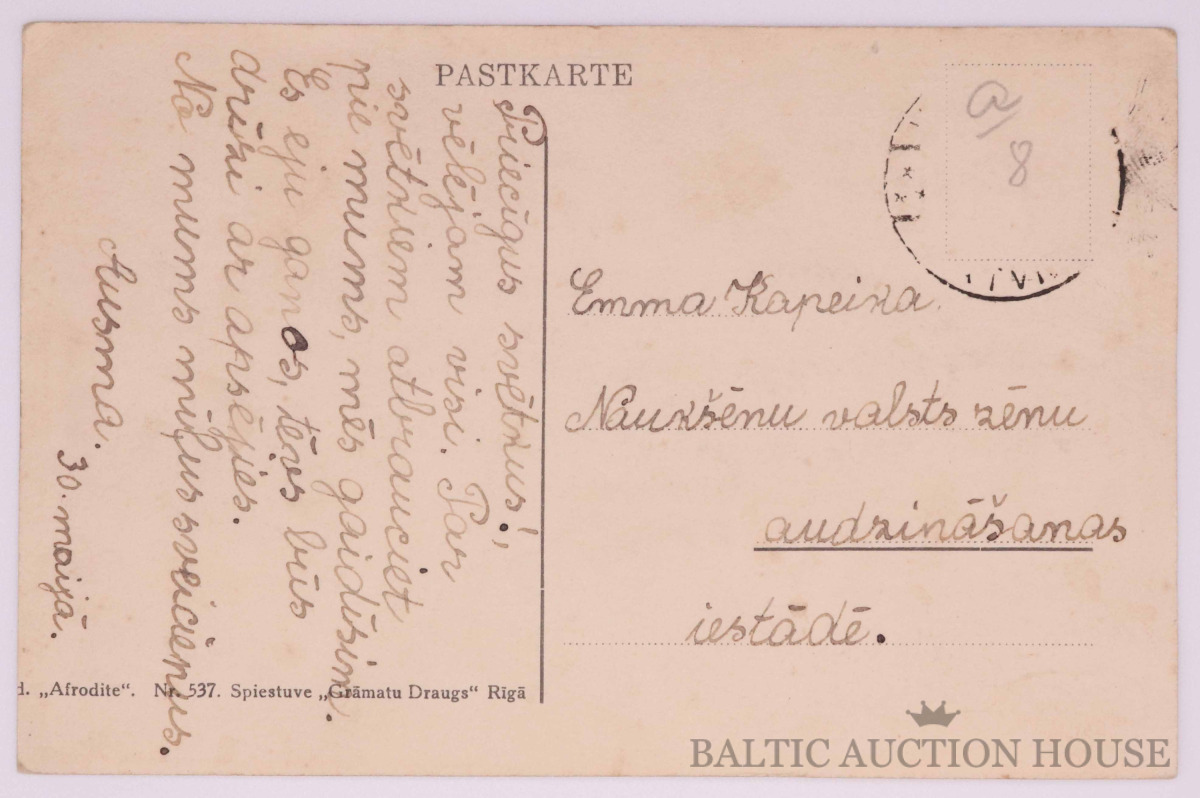 PASTKARTE
Priecīgus svētkus!,
vēlējam visi. Par
svētkiem atbrauciet
pie mums, mēs gaidīsim.
Es eju ganos, tēvs būs
drīzi ar apsējies.
No mums mīļus sveicienus.
Ausma.
30. maijā.
a/8
Emma Kapeika.
Naukšēnu valsts zēnu
audzināšanas
iestādē.
d. „Afrodite“. Nr. 537. Spiestuve „Grāmatu Draugs“ Rīgā
BALTIC AUCTION HOUSE